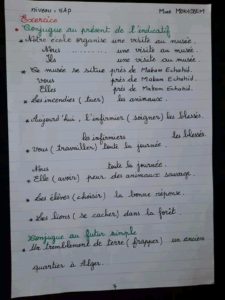 Niveau : 5AP
Exercice
Conjugue au présent de l'indicatif
* Notre école organise une visite au musée.
Nous ........ une visite au musée.
Ils ........ une visite au musée.
* Ce musée se situe près de Makam Echahid.
Vous ........ près de Makam Echahid.
Elles ........ près de Makam Echahid.
* Les incendies (tuer) la animaux.
* Aujourd'hui, l'infirmier (soigner) les blessés.
les infirmiers ........ les blessés.
* Vous (travailler) toute la journée.
Nous ........ toute la journée.
* Elle (avoir) peur des animaux sauvage.
* Les élèves (choisir) la bonne réponse.
* Les lions (se cacher) dans la forêt.
Conjugue au futur simple
* Un tremblement de terre (frapper) un ancien
quartier à Alger.